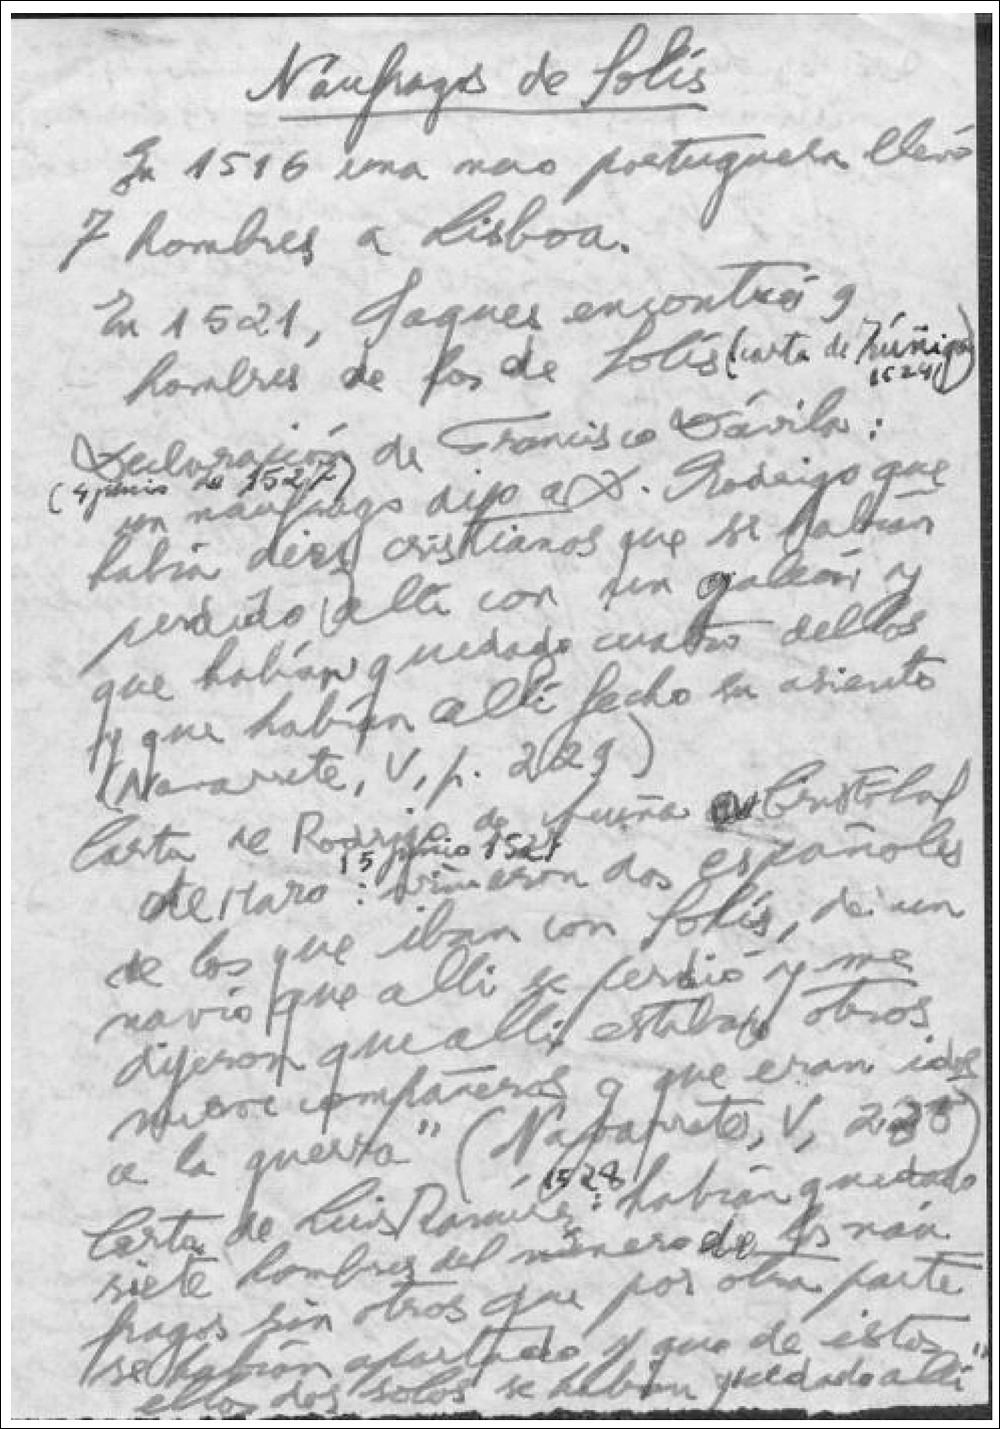 Náufragos de Solís
En 1516 una nao portuguesa llevó
7 hombres a Lisboa.
En 1521, Jaques encontró 9
hombres de los de Solís (carta de Zúñiga,
1524)
Declaración de Francisco Dávila:
(4 junio de 1527)
un naufrago dijo a D. Rodrigo que
había diez cristianos que se habían
perdido allí con un galeón y
que habían quedado cuatro dellos
y que habían allí fecho su asiento
(Navarrete, V, p. 229)
Carta de Rodrigo de Acuña a Cristóbal
15 junio 1527
de Haro: vinieron dos españoles
de los que iban con Solís, de un
navío que alli se perdió y me
dijeron que alli estaban otros
nueve compañeros y que eran idos
a la guerra" (Navarrete, V, 238)
1528
Carta de Luis Ramírez: habían quedado
siete hombres del número de los náu
fragos sin otros que por otra parte
se habían apartado y que de estos
ellos dos solos se habían quedado allí"